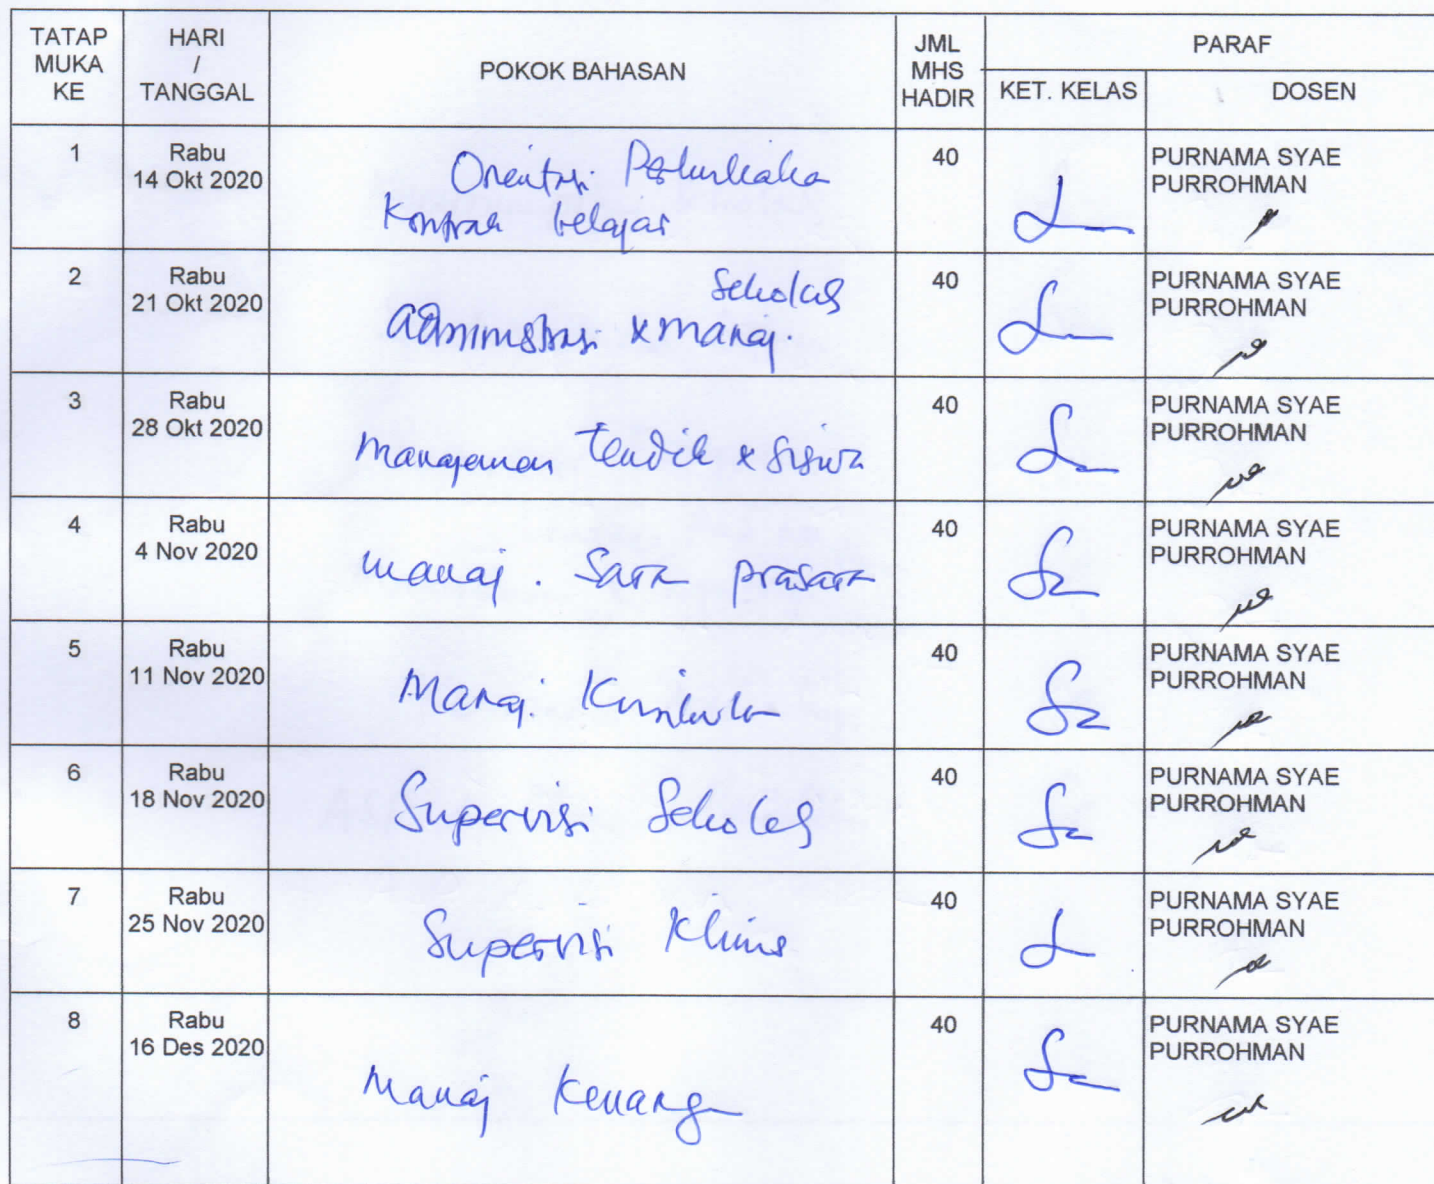 TATAP MUKA KE
HARI / TANGGAL
POKOK BAHASAN
JML MHS HADIR
PARAF
KET. KELAS
DOSEN
1
Rabu
14 Okt 2020
Kontrak belajar
40
PURNAMA SYAE
PURROHMAN
2
Rabu
21 Okt 2020
Sekolah
Administrasi & manaj.
40
PURNAMA SYAE
PURROHMAN
3
Rabu
28 Okt 2020
Manajemen tendik & siswa
40
PURNAMA SYAE
PURROHMAN
4
Rabu
4 Nov 2020
manaj. Sara prasara
40
PURNAMA SYAE
PURROHMAN
5
Rabu
11 Nov 2020
Manaj. Kurikulum
40
PURNAMA SYAE
PURROHMAN
6
Rabu
18 Nov 2020
Supervisi Sekolah
40
PURNAMA SYAE
PURROHMAN
7
Rabu
25 Nov 2020
Supervisi Klinis
40
PURNAMA SYAE
PURROHMAN
8
Rabu
16 Des 2020
Manaj Keuangan
40
PURNAMA SYAE
PURROHMAN